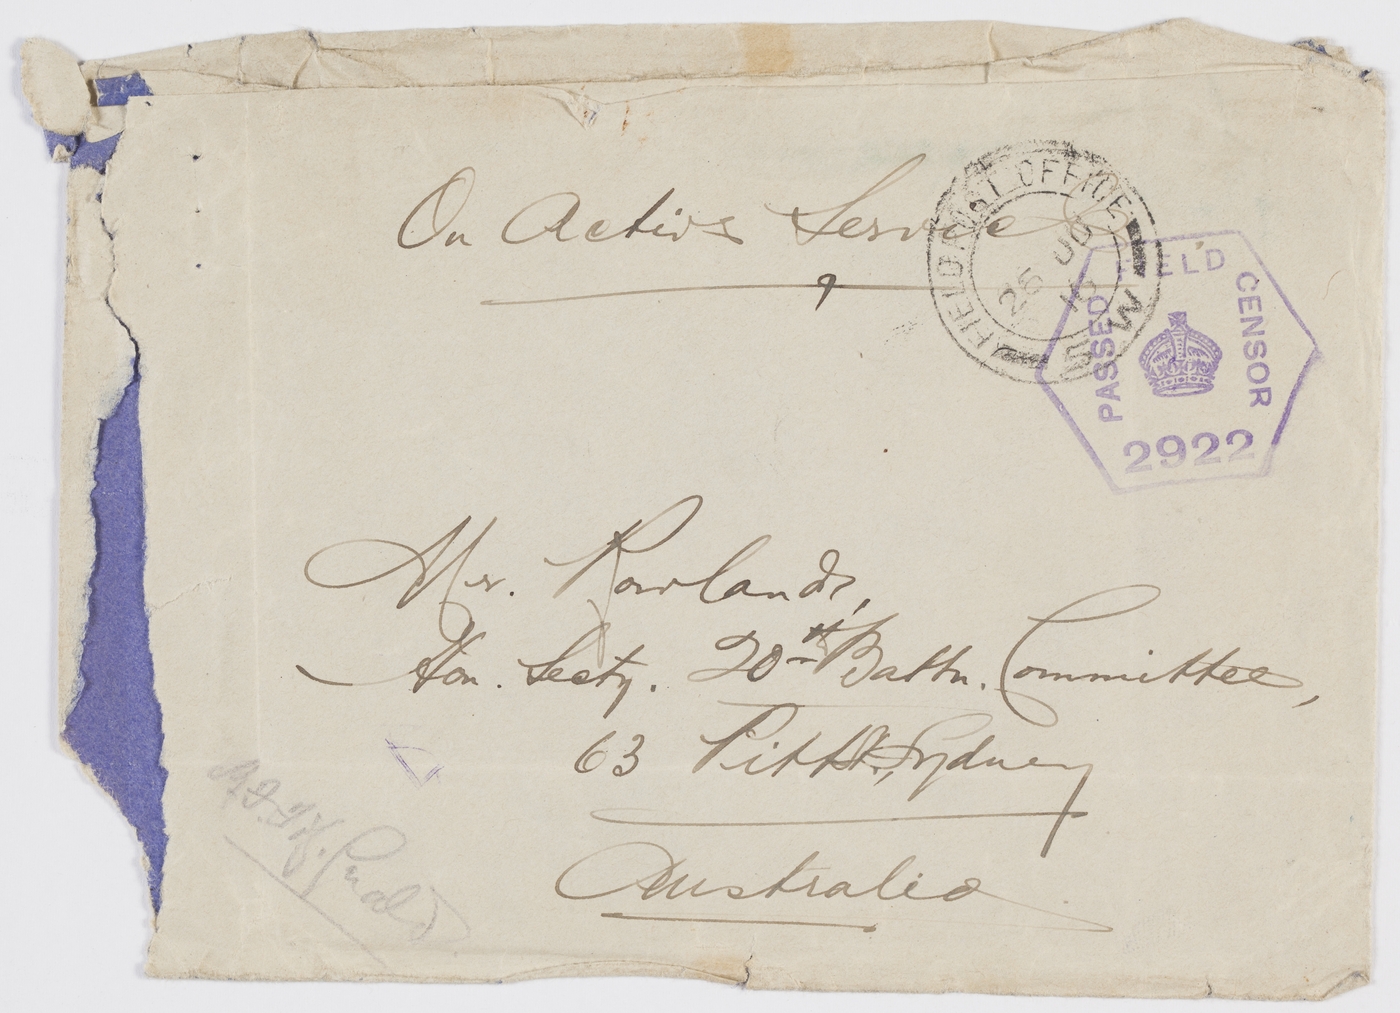 On Active Service
FIELD POST OFFICE
26 JU
W
PASSED FIELD CENSOR
2922
Mr. Rowlands,
Hon. Secty. 20th Battn. Committee,
63 Pitt St., Sydney
Australia